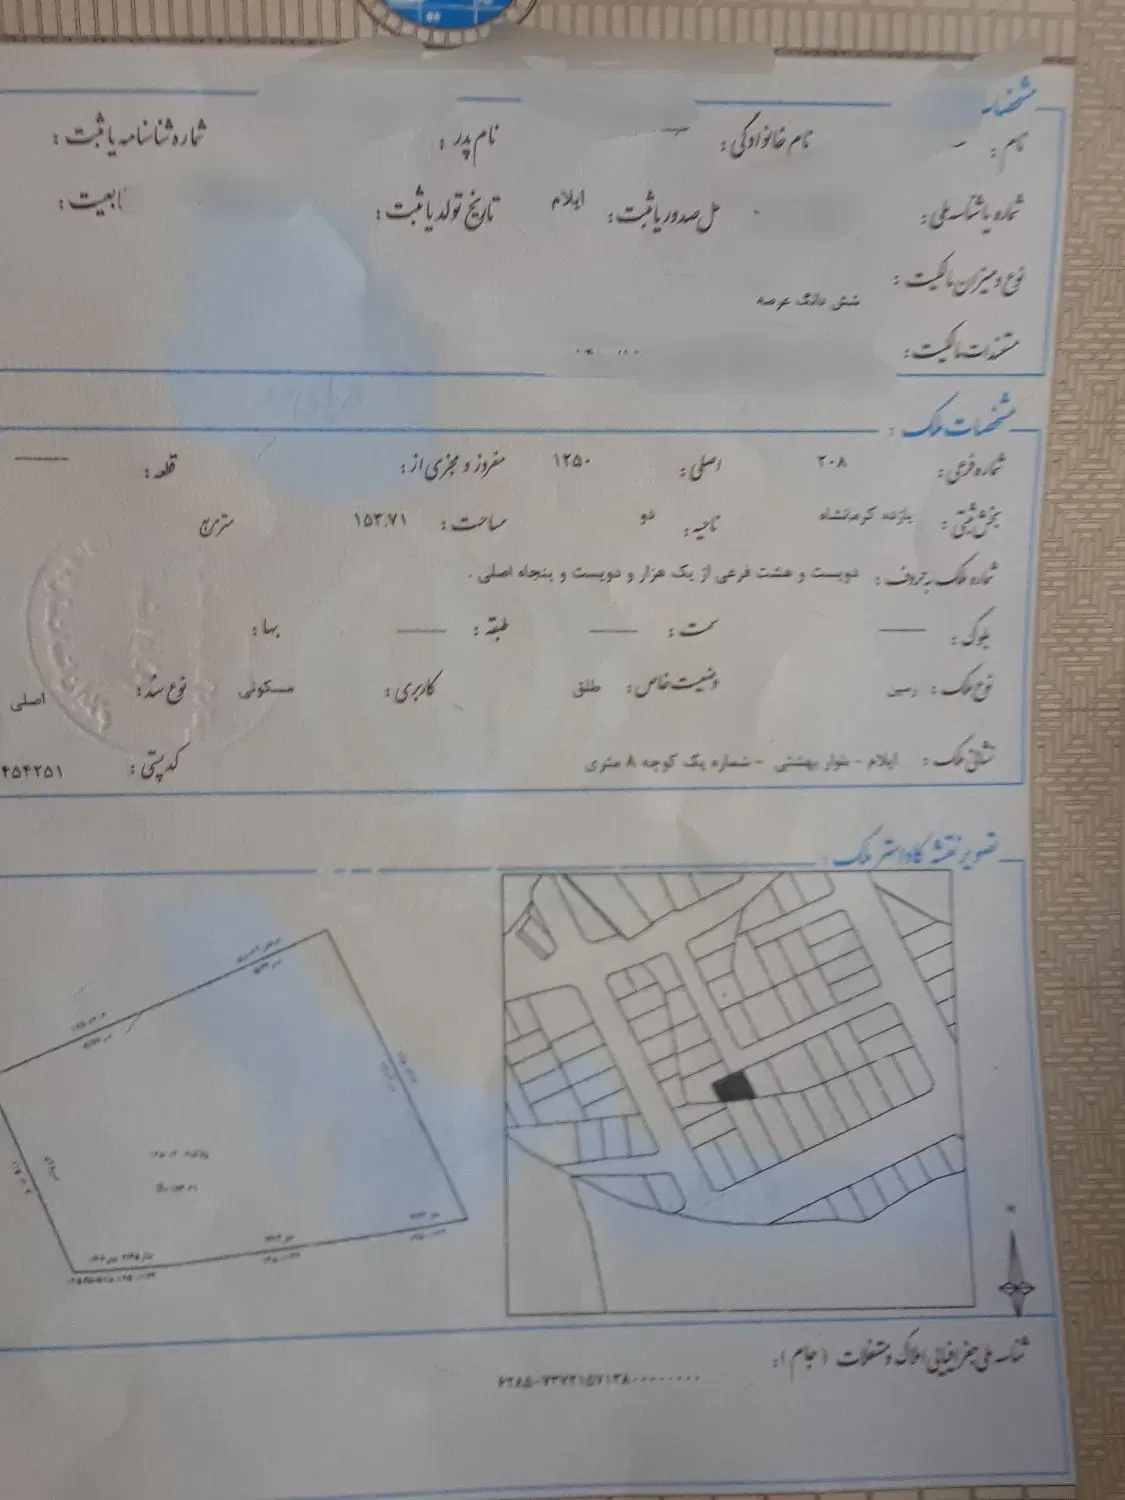 مشخصات
نام : نام خانوادگی : نام پدر : شماره شناسنامه یا ثبت :
شماره یا شناسه ملی : محل صدور یا ثبت : ایلام تاریخ تولد یا ثبت : تابعیت :
نوع و میزان مالکیت : شش دانگ عرصه
مستندات مالکیت :
مشخصات ملک :
شماره فرعی : ۲۰۸ اصلی : ۱۲۵۰ مفروز و مجزی از : قطعه :
بخش ثبتی : یازده کرمانشاه ناحیه : دو مساحت : ۱۵۳.۷۱ متر مربع
شماره ملک به حروف : دویست و هشت فرعی از یک هزار و دویست و پنجاه اصلی .
بلوک : سمت : طبقه : بها :
نوع ملک : زمین وضعیت خاص : طلق کاربری : مسکونی نوع سند : اصلی
نشانی ملک : ایلام - بلوار بهشتی - شماره یک کوچه ۸ متری کد پستی :
تصویر نقشه کاداستر ملک :
شناسه ملی جغرافیایی املاک و مستغلات (جام) :